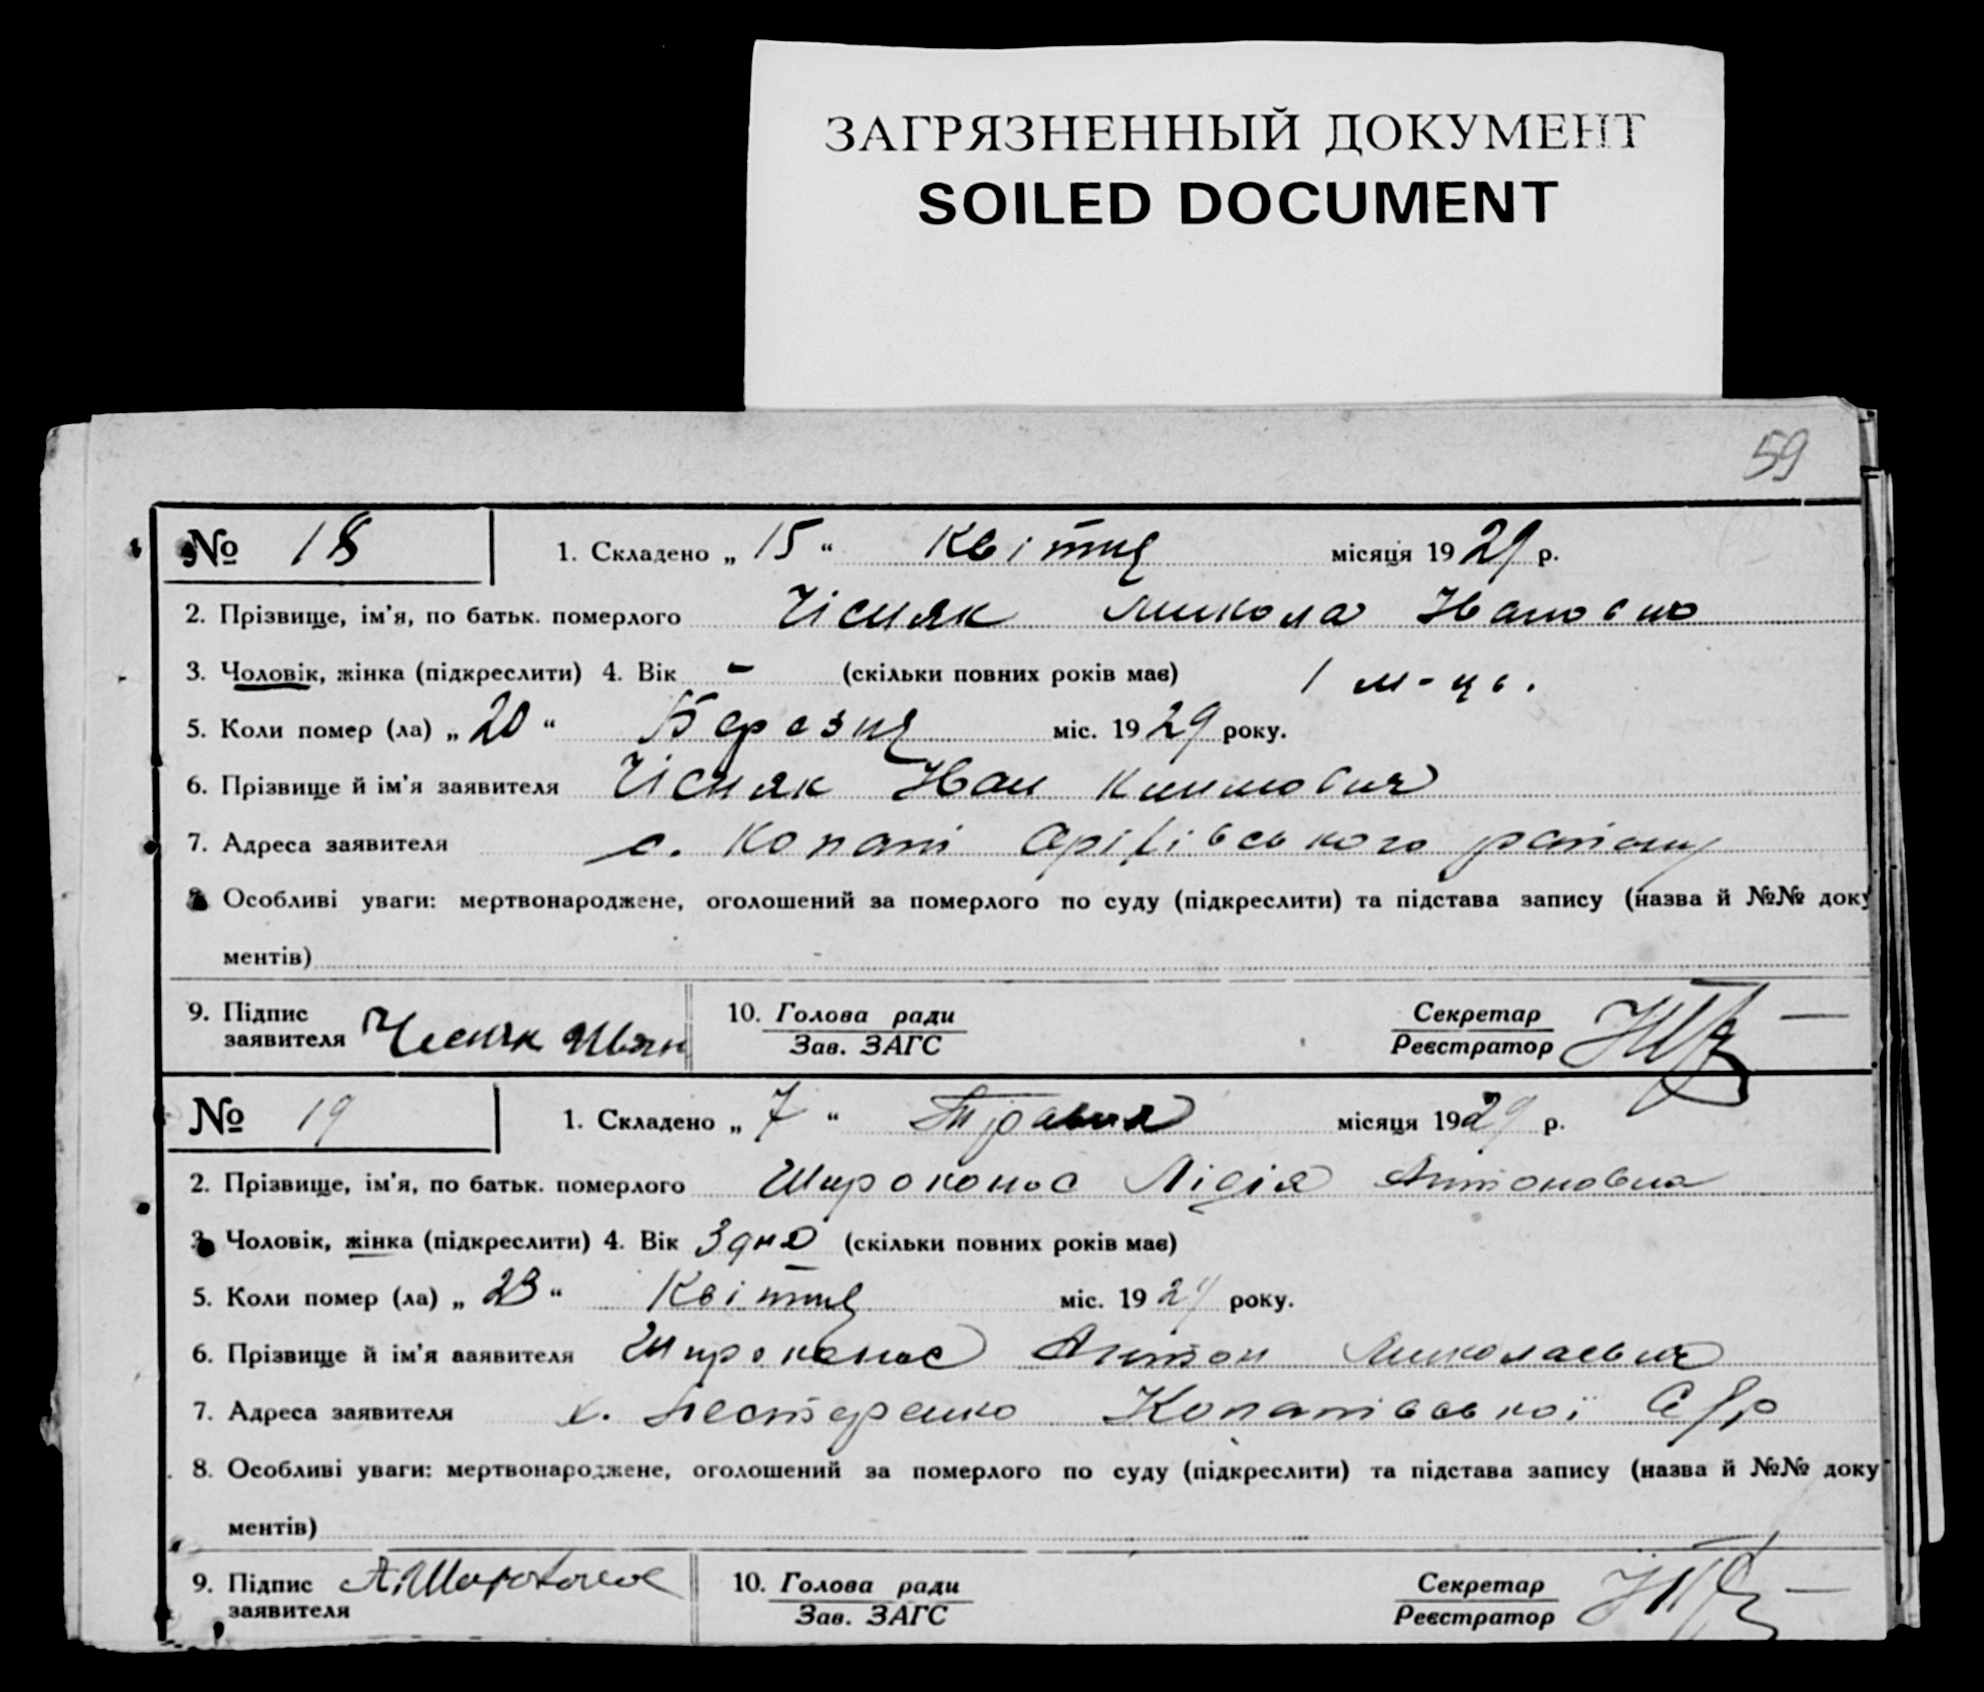 ЗАГРЯЗНЕННЫЙ ДОКУМЕНТ
SOILED DOCUMENT
59
№ 18
1. Складено „ 15 “ Квітня місяця 1929 р.
2. Прізвище, ім'я, по батьк. померлого Чісняк Микола Іванович
3. Чоловік, жінка (підкреслити) 4. Вік - (скільки повних років має) 1 м-ць.
5. Коли помер (ла) „ 20 “ Березня міс. 1929 року.
6. Прізвище й ім'я заявителя Чісняк Іван Климович
7. Адреса заявителя с. Копані Оріхівського району
8. Особливі уваги: мертвонароджене, оголошений за померлого по суду (підкреслити) та підстава запису (назва й №№ доку
ментів)
9. Підпис заявителя Чесняк Иван
10. Голова ради
Зав. ЗАГС
Секретар
Реєстратор
№ 19
1. Складено „ 7 “ Травня місяця 1929 р.
2. Прізвище, ім'я, по батьк. померлого Широконос Лідія Антоновна
3. Чоловік, жінка (підкреслити) 4. Вік 3 дня (скільки повних років має)
5. Коли помер (ла) „ 23 “ Квітня міс. 1929 року.
6. Прізвище й ім'я заявителя Широконос Антон Миколаевич
7. Адреса заявителя х. Нестеренко Копанівської С/р
8. Особливі уваги: мертвонароджене, оголошений за померлого по суду (підкреслити) та підстава запису (назва й №№ доку
ментів)
9. Підпис заявителя А. Широконос
10. Голова ради
Зав. ЗАГС
Секретар
Реєстратор